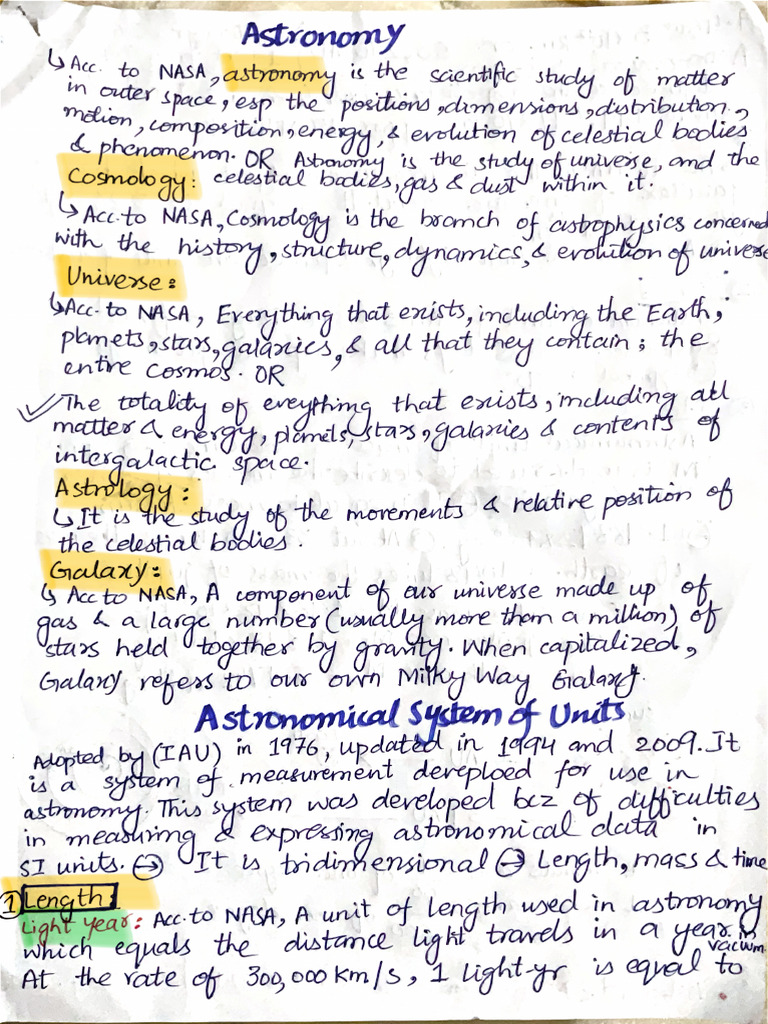 Astronomy
↳ Acc. to NASA, astronomy is the scientific study of matter
in outer space, esp the positions, dimensions, distribution,
motion, composition, energy, & evolution of celestial bodies
& phenomenon. OR Astronomy is the study of universe, and the
Cosmology: celestial bodies, gas & dust within it.
↳ Acc. to NASA, Cosmology is the branch of astrophysics concerned
with the history, structure, dynamics, & evolution of universe
Universe:
↳ Acc. to NASA, Everything that exists, including the Earth,
planets, stars, galaxies, & all that they contain; the
entire cosmos. OR
✓ The totality of eveything that exists, including all
matter & energy, planets, stars, galaxies & contents of
intergalactic space.
Astrology:
↳ It is the study of the movements & relative position of
the celestial bodies.
Galaxy:
↳ Acc to NASA, A component of our universe made up of
gas & a large number (usually more than a million) of
stars held together by gravity. When capitalized,
Galaxy refers to our own Milky Way Galaxy.
Astronomical System of Units
Adopted by (IAU) in 1976, updated in 1994 and 2009. It
is a system of measurement dereploed for use in
astronomy. This system was developed bcz of difficulties
in measuring & expressing astronomical data in
SI units. → It is tridimensional → Length, mass & time
1 Length:
Light year: Acc. to NASA, A unit of length used in astronomy
which equals the distance light travels in a year in vacuum.
At the rate of 300,000 km/s, 1 light-yr is equal to